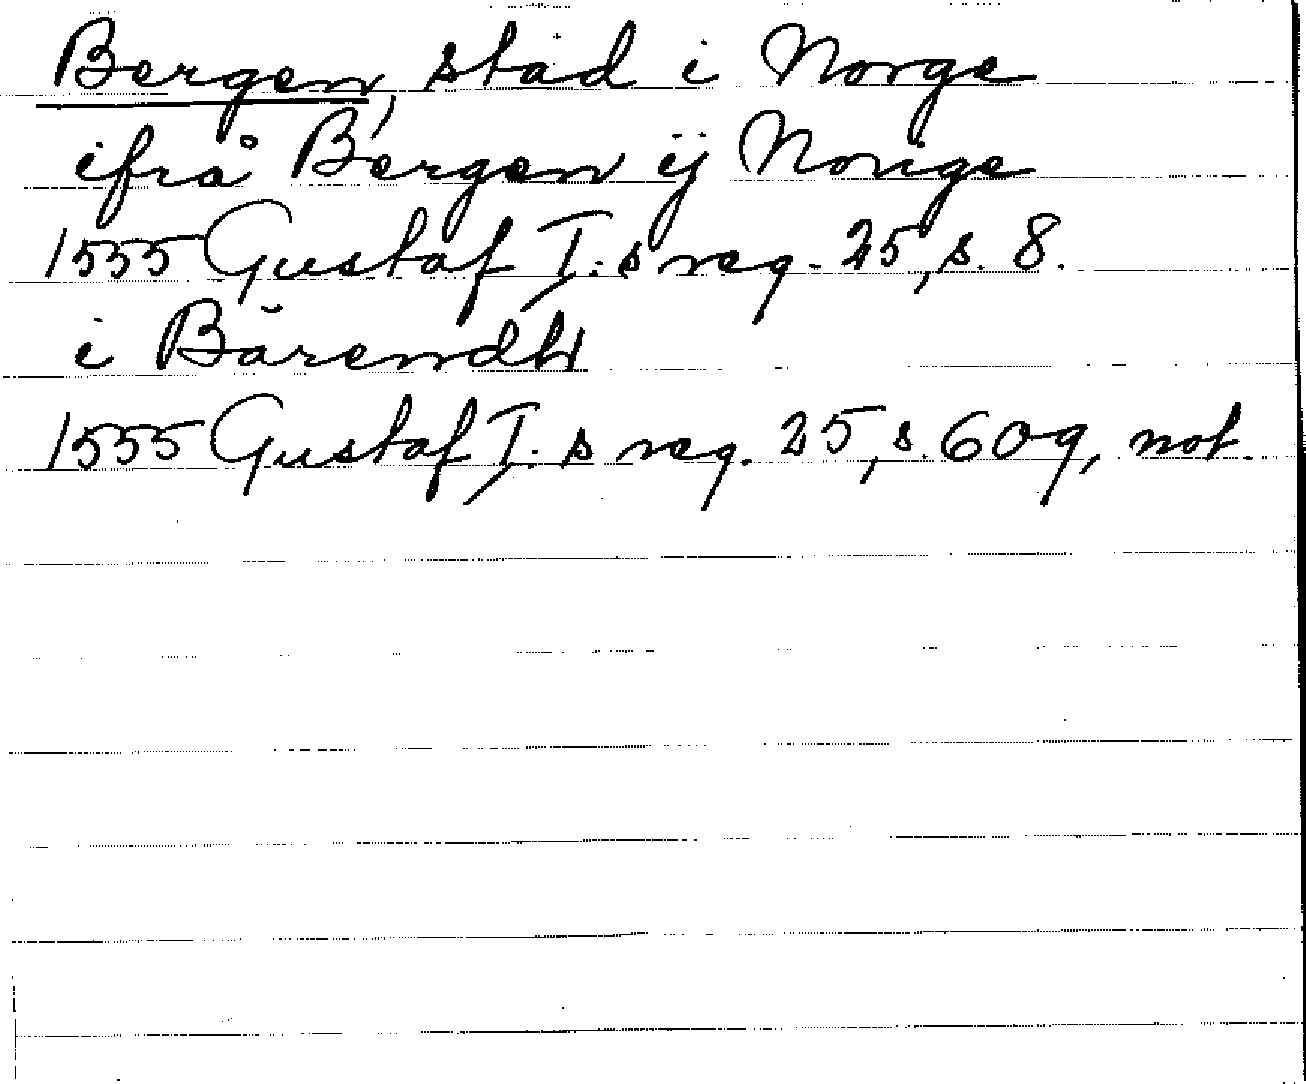 Bergen, stad i Norge
ifrå Bergen ij Norige
1555 Gustaf I:s reg. 25, s. 8.
i Bärendh
1555 Gustaf I:s reg. 25, s. 609, not.